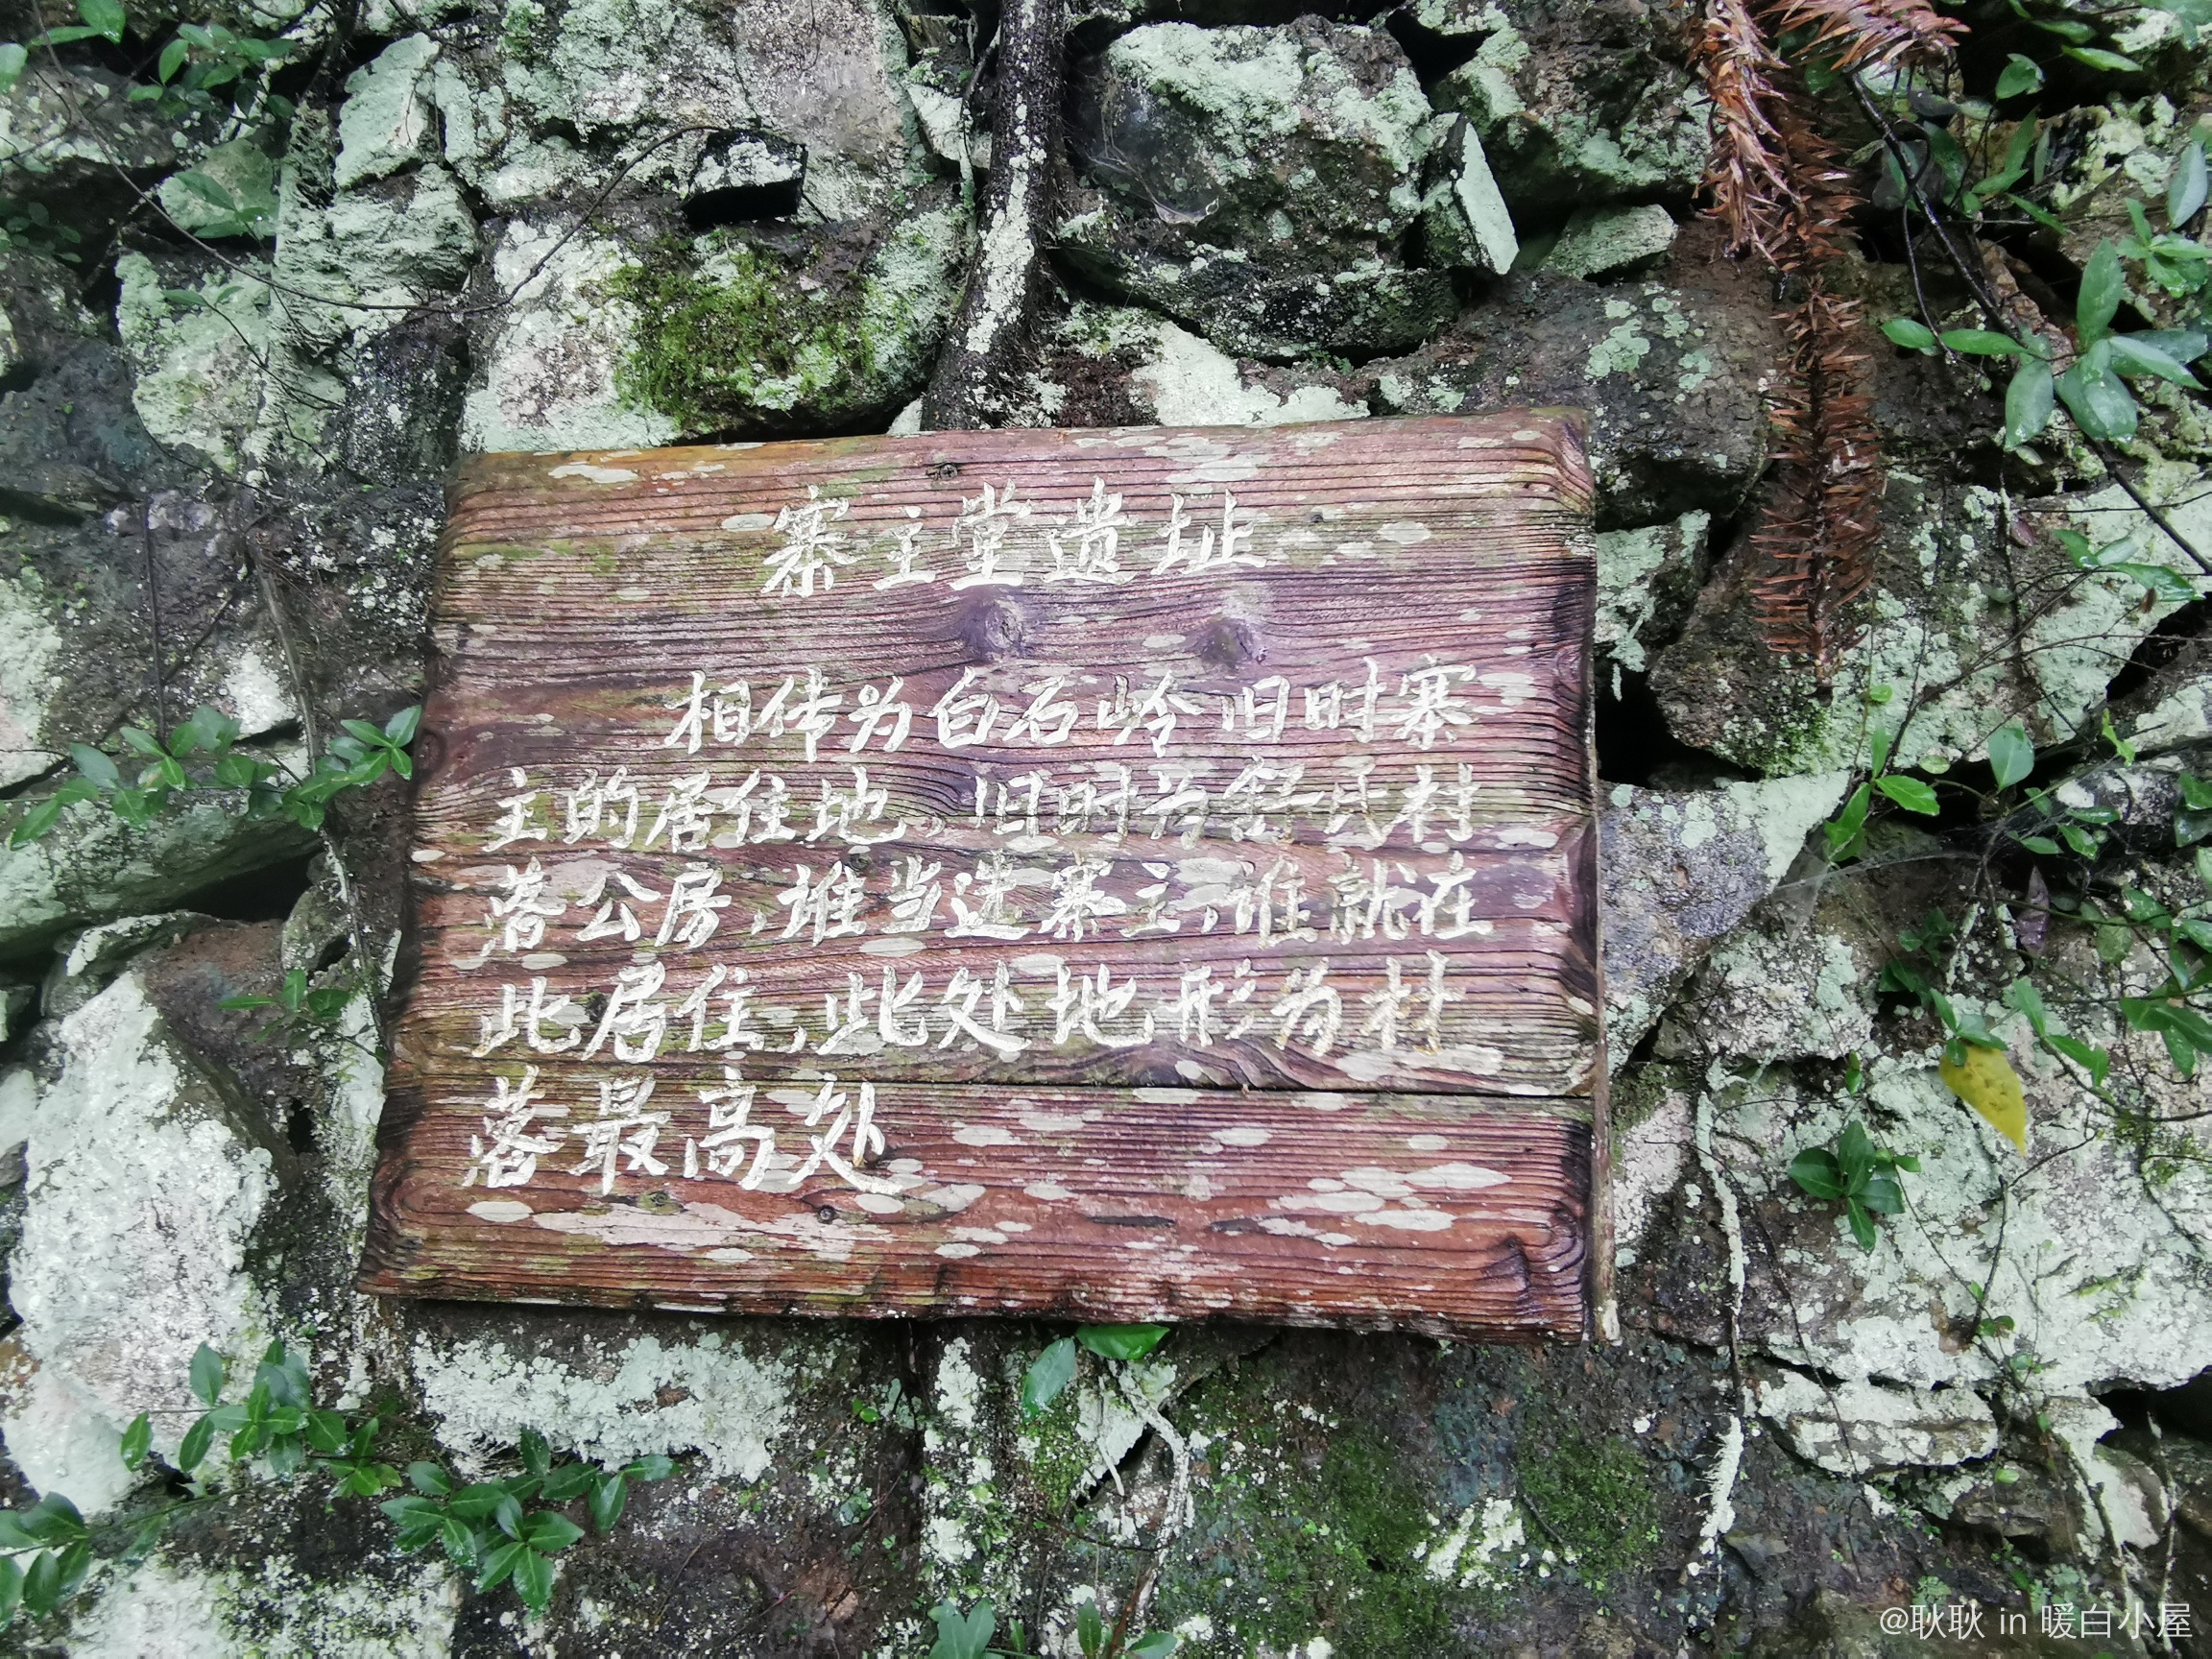 寨主堂遗址
相传为白石岭旧时寨
主的居住地。旧时为舒氏村
落公房，谁当选寨主，谁就在
此居住，此处地形为村
落最高处
@耿耿 in 暖白小屋